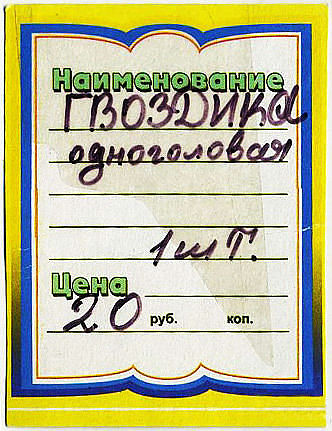 Наименование
ГВОЗДИКА
одноголовая
1 шт.
Цена
20 руб. коп.